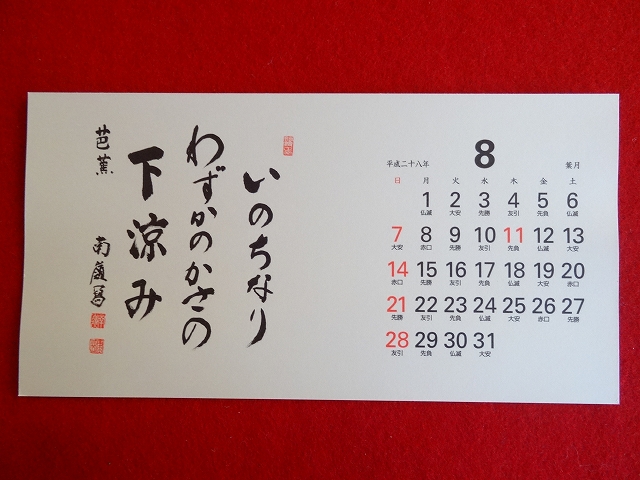 いのちなり
わずかのかさの
下涼み
芭蕉
平成二十八年 8 葉月
日 月 火 水 木 金 土
1 2 3 4 5 6
仏滅 大安 先勝 友引 先負 仏滅
7 8 9 10 11 12 13
大安 赤口 先勝 友引 先負 仏滅 大安
14 15 16 17 18 19 20
赤口 先勝 友引 先負 仏滅 大安 赤口
21 22 23 24 25 26 27
先勝 友引 先負 仏滅 大安 赤口 先勝
28 29 30 31
友引 先負 仏滅 大安